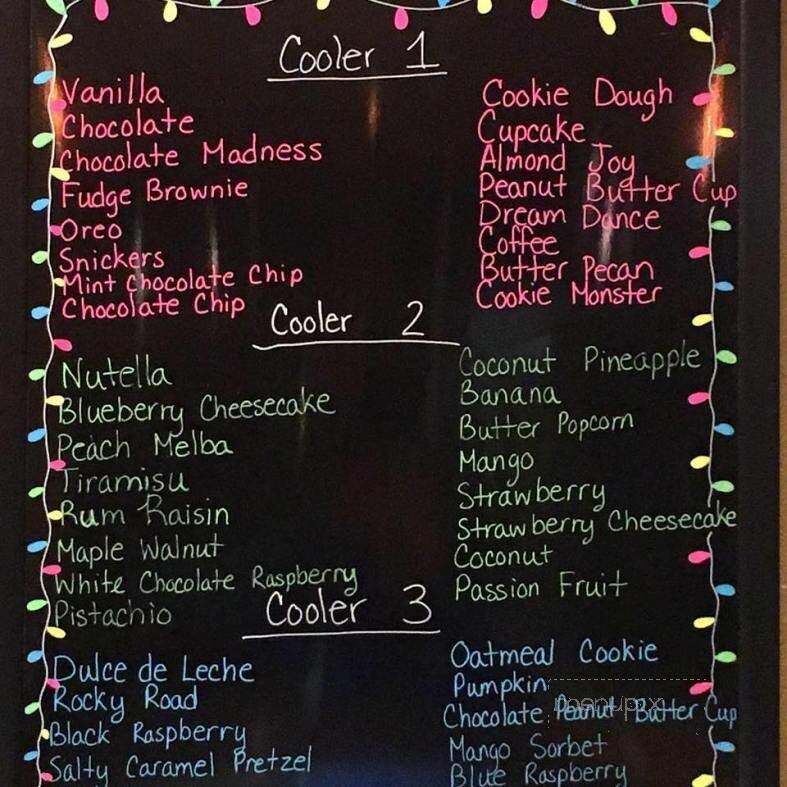 Cooler 1
Vanilla
Chocolate
Chocolate Madness
Fudge Brownie
Oreo
Snickers
Mint Chocolate Chip
Chocolate Chip
Cookie Dough
Cupcake
Almond Joy
Peanut Butter Cup
Dream Dance
Coffee
Butter Pecan
Cookie Monster
Cooler 2
Nutella
Blueberry Cheesecake
Peach Melba
Tiramisu
Rum Raisin
Maple Walnut
White Chocolate Raspberry
Pistachio
Coconut Pineapple
Banana
Butter Popcorn
Mango
Strawberry
Strawberry Cheesecake
Coconut
Passion Fruit
Cooler 3
Dulce de Leche
Rocky Road
Black Raspberry
Salty Caramel Pretzel
Oatmeal Cookie
Pumpkin
Chocolate Peanut Butter Cup
Mango Sorbet
Blue Raspberry
menupix